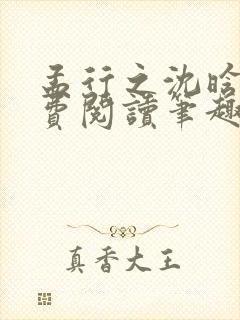 孟行之沈晗
費閱讀筆趣
真香大王